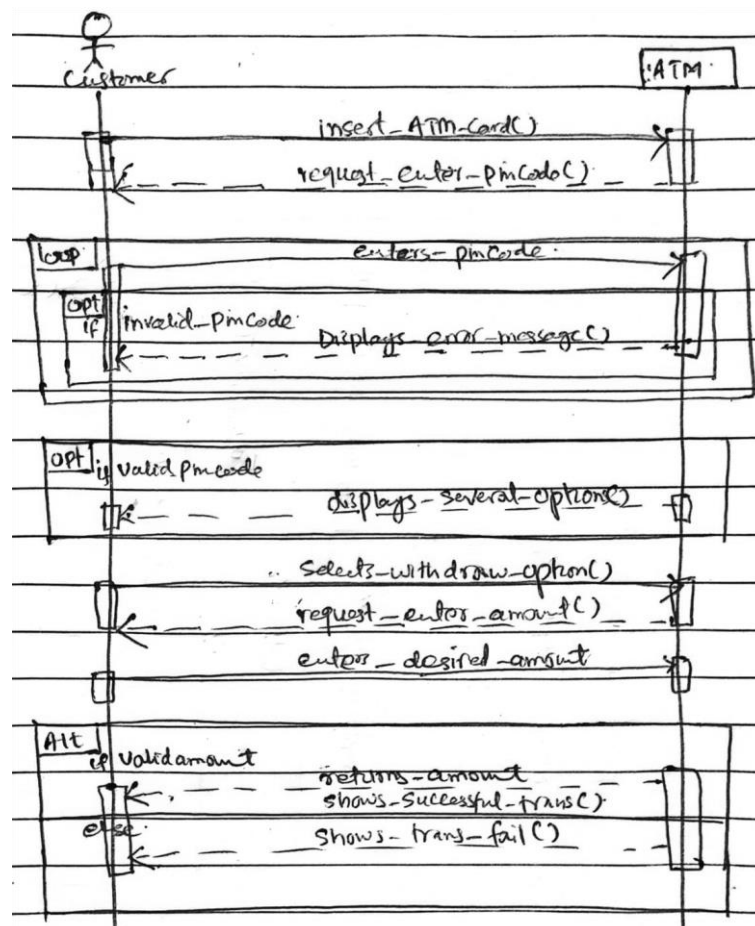 Customer
:ATM
insert_ATM_Card()
request_enter_pincode()
loop
enters_pincode
opt
if invalid_pincode
Displays_error_message()
opt
if valid pincode
displays_several_options()
Selects_withdraw_option()
request_enter_amount()
enters_desired_amount
Alt
if valid amount
returns_amount
shows_successful_trans()
else
shows_trans_fail()